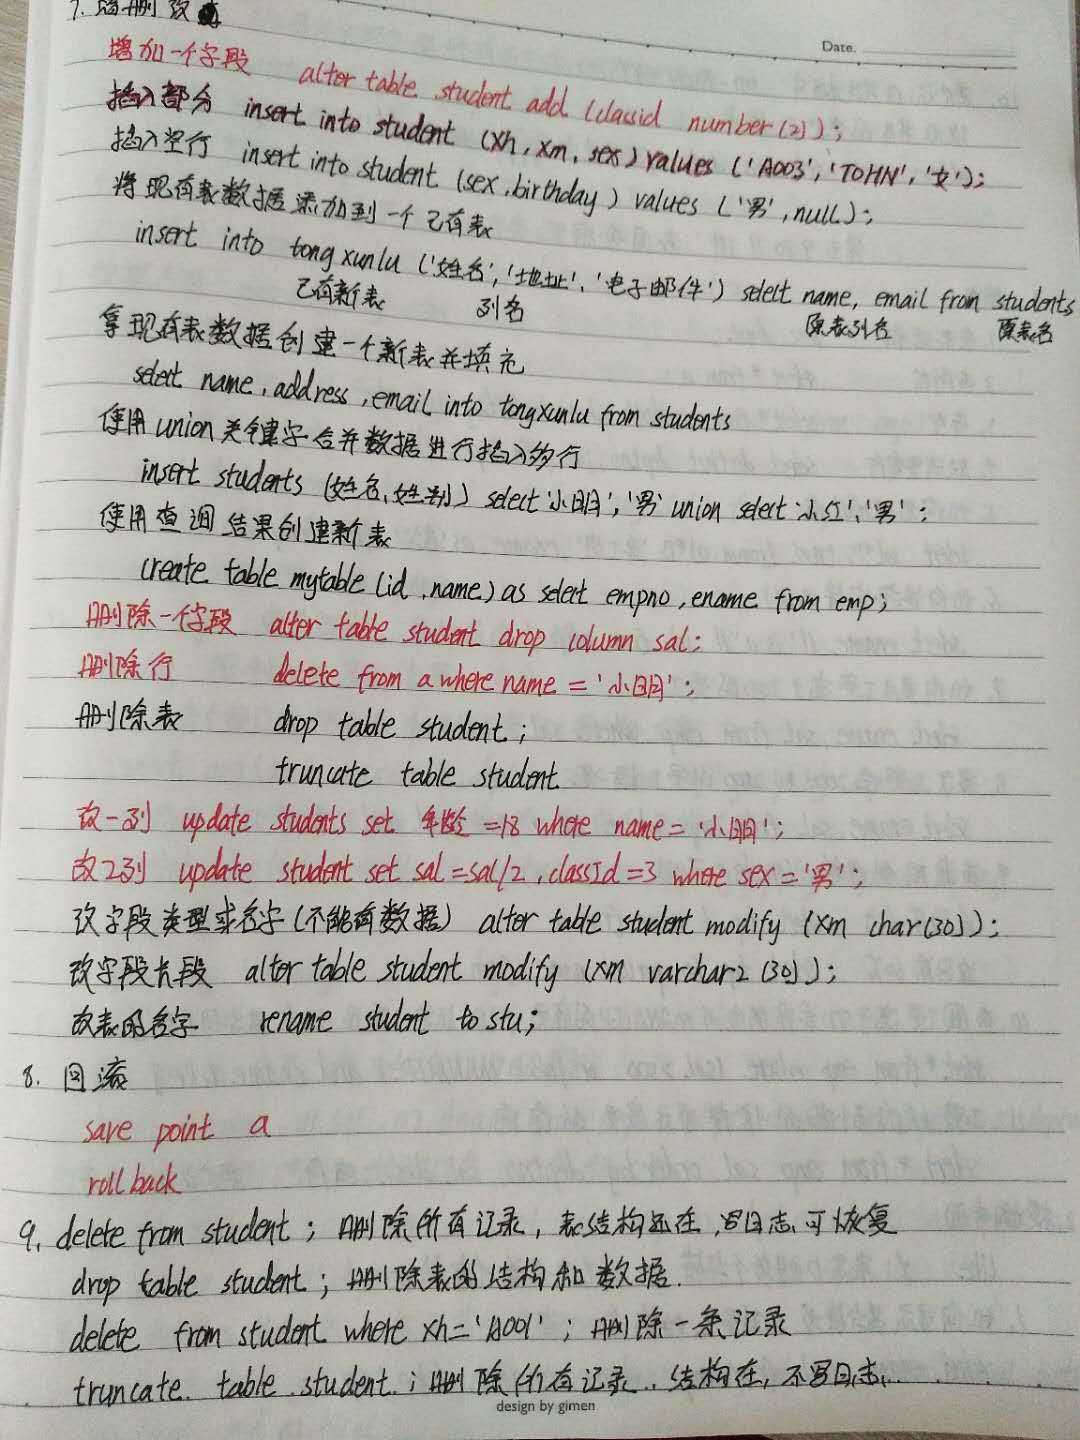 7. 增删改
Date.
增加一个字段 alter table student add (classid number(2));
插入部分 insert into student (xh, xm, sex) values ('A003','JOHN','女');
插入空行 insert into student (sex,birthday) values ('男',null);
将现有表数据添加到一个已有表
insert into tongxunlu ('姓名','地址','电子邮件') select name, email from students
已有新表 列名 原表列名 原表名
拿现有表数据创建一个新表并填充
select name,address,email into tongxunlu from students
使用union关键字合并数据进行插入多行
insert students (姓名,姓别) select '小明','男' union select '小红','男';
使用查询结果创建新表
create table mytable (id,name) as select empno,ename from emp;
删除一个字段 alter table student drop column sal;
删除行 delete from a where name='小明';
删除表 drop table student;
truncate table student
改一列 update students set 年龄=18 where name='小明';
改2列 update student set sal=sal/2,classId=3 where sex='男';
改字段类型或名字(不能有数据) alter table student modify (xm char(30));
改字段长段 alter table student modify (xm varchar2(30));
改表的名字 rename student to stu;
8. 回滚
save point a
roll back
9. delete from student; 删除所有记录,表结构还在,写日志,可恢复
drop table student; 删除表的结构和数据.
delete from student where xh='A001'; 删除一条记录
truncate table student; 删除所有记录,结构在,不写日志,
design by gimen